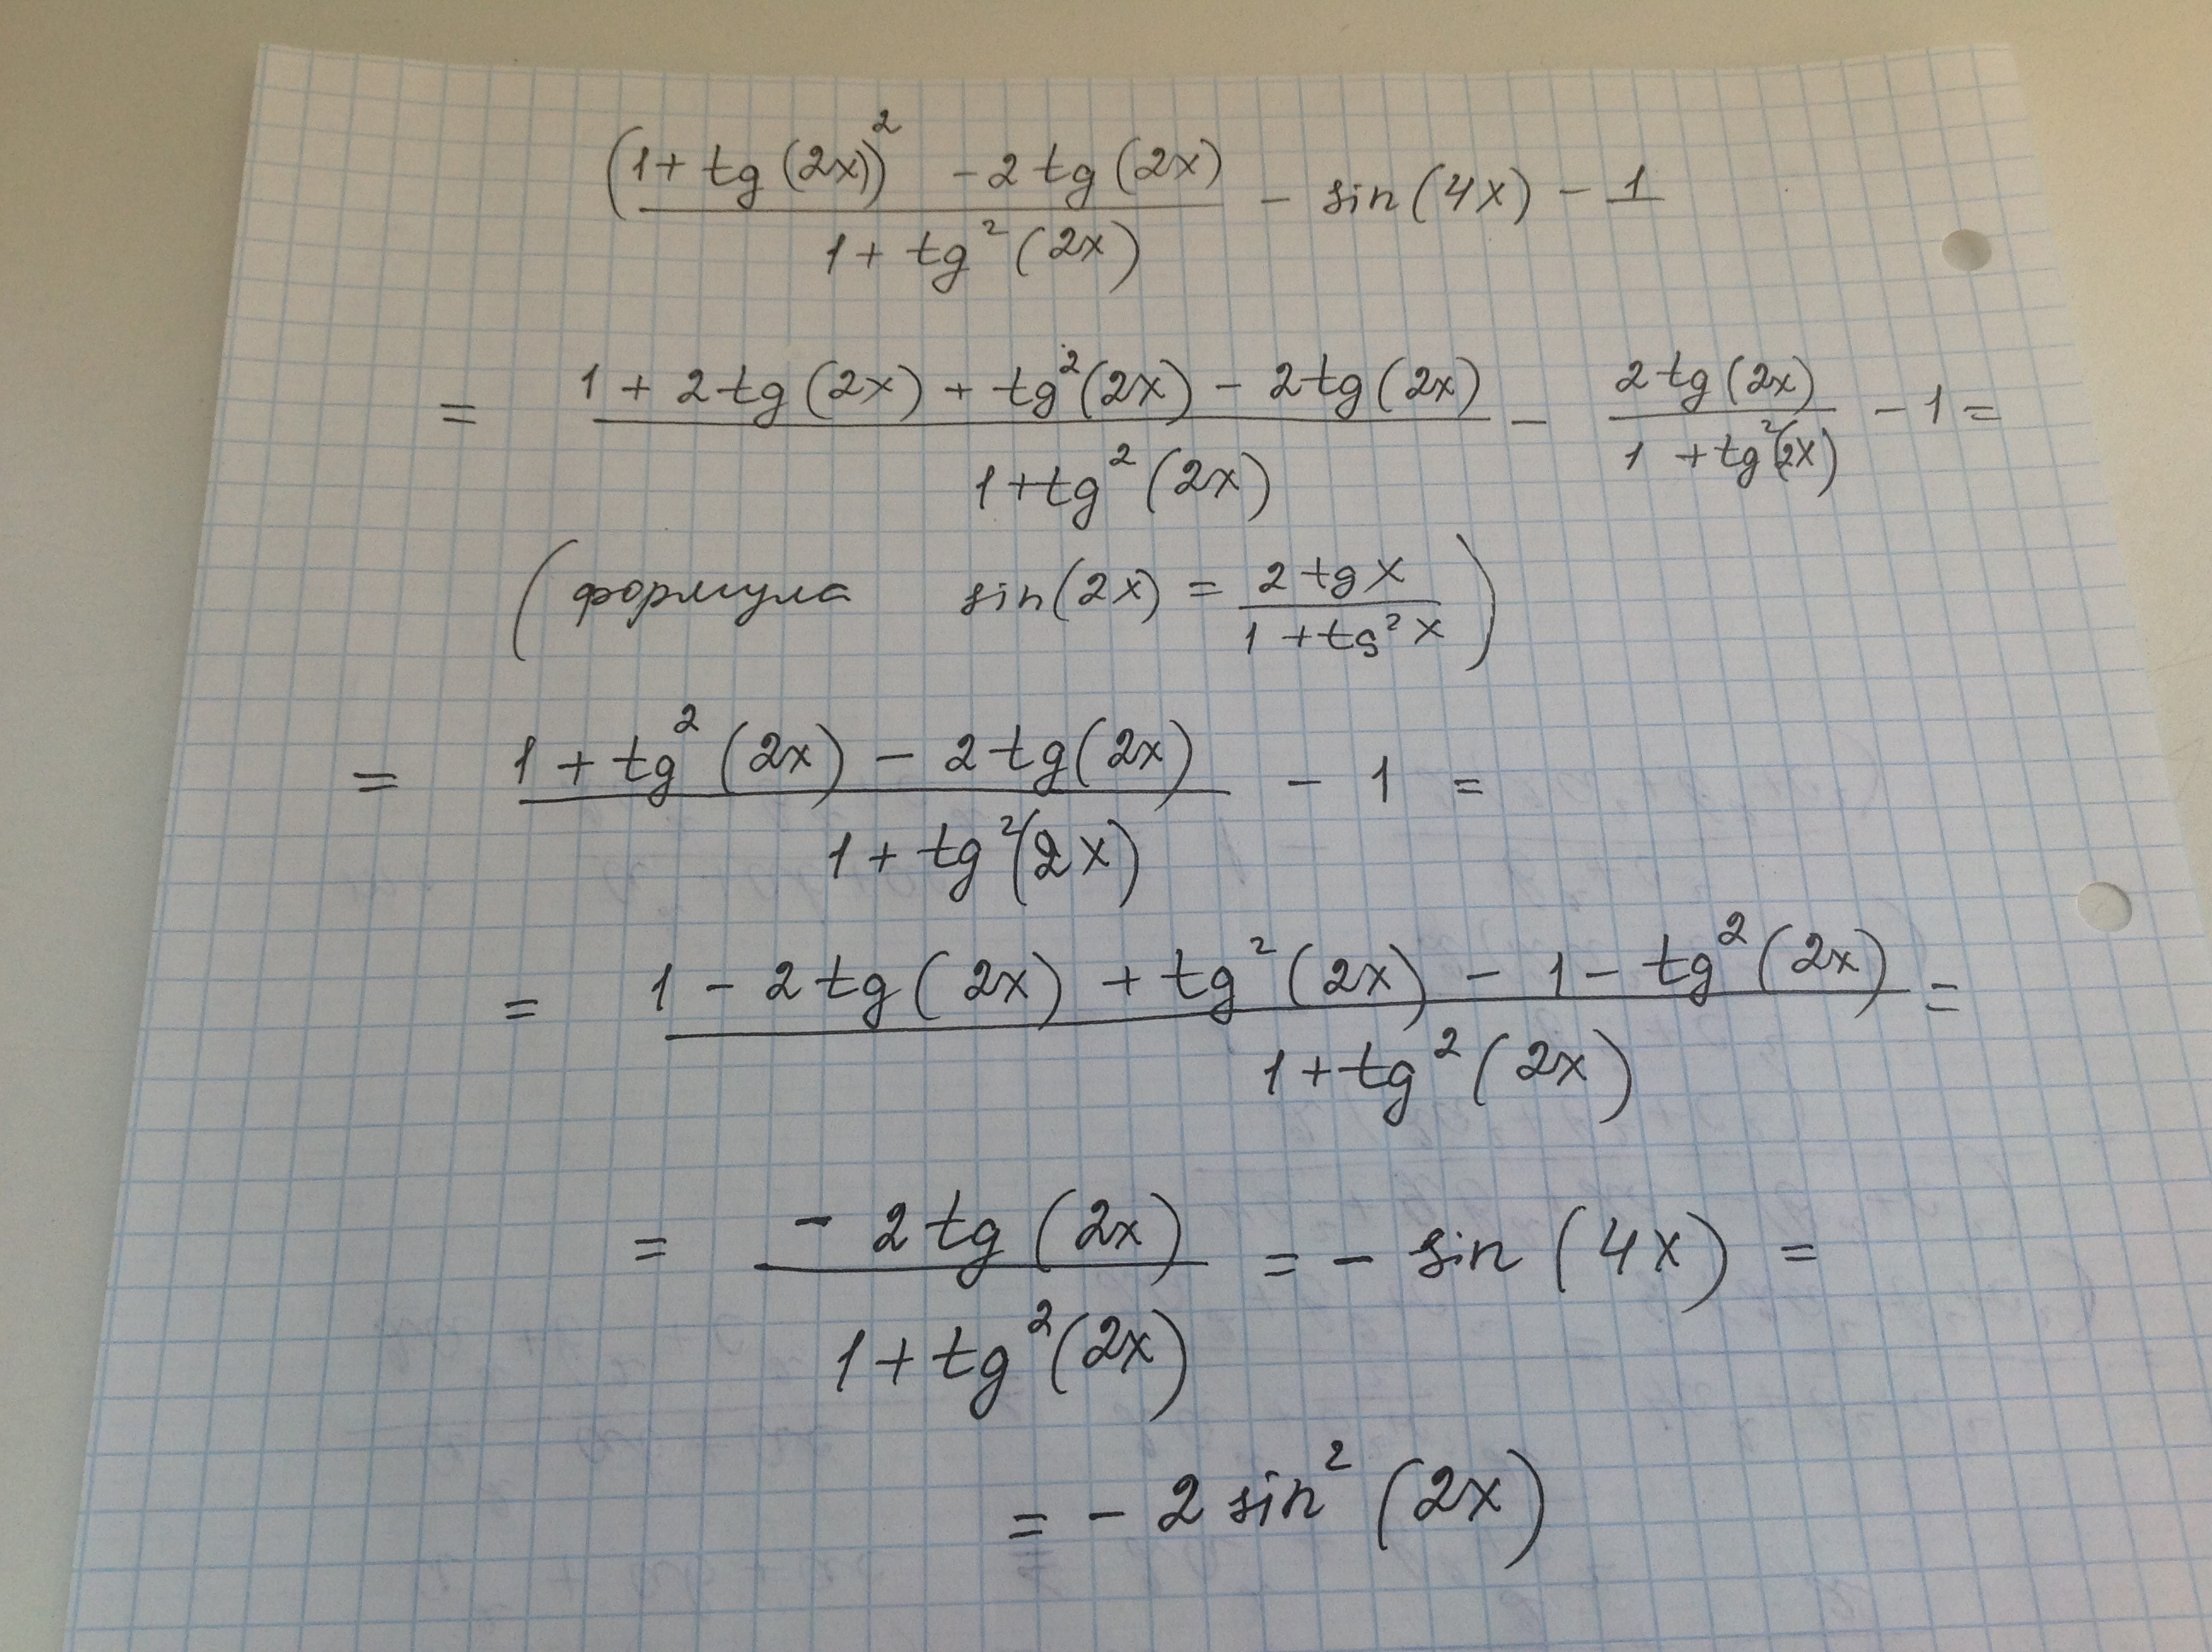 (1 + tg (2x))² - 2 tg (2x) / 1 + tg² (2x) - sin(4x) - 1
= 1 + 2 tg (2x) + tg² (2x) - 2 tg (2x) / 1 + tg² (2x) - 2 tg (2x) / 1 + tg² (2x) - 1 =
(формула sin(2x) = 2 tg x / 1 + tg² x)
= 1 + tg² (2x) - 2 tg (2x) / 1 + tg² (2x) - 1 =
= 1 - 2 tg (2x) + tg² (2x) - 1 - tg² (2x) / 1 + tg² (2x) =
= - 2 tg (2x) / 1 + tg² (2x) = - sin (4x) =
= - 2 sin² (2x)